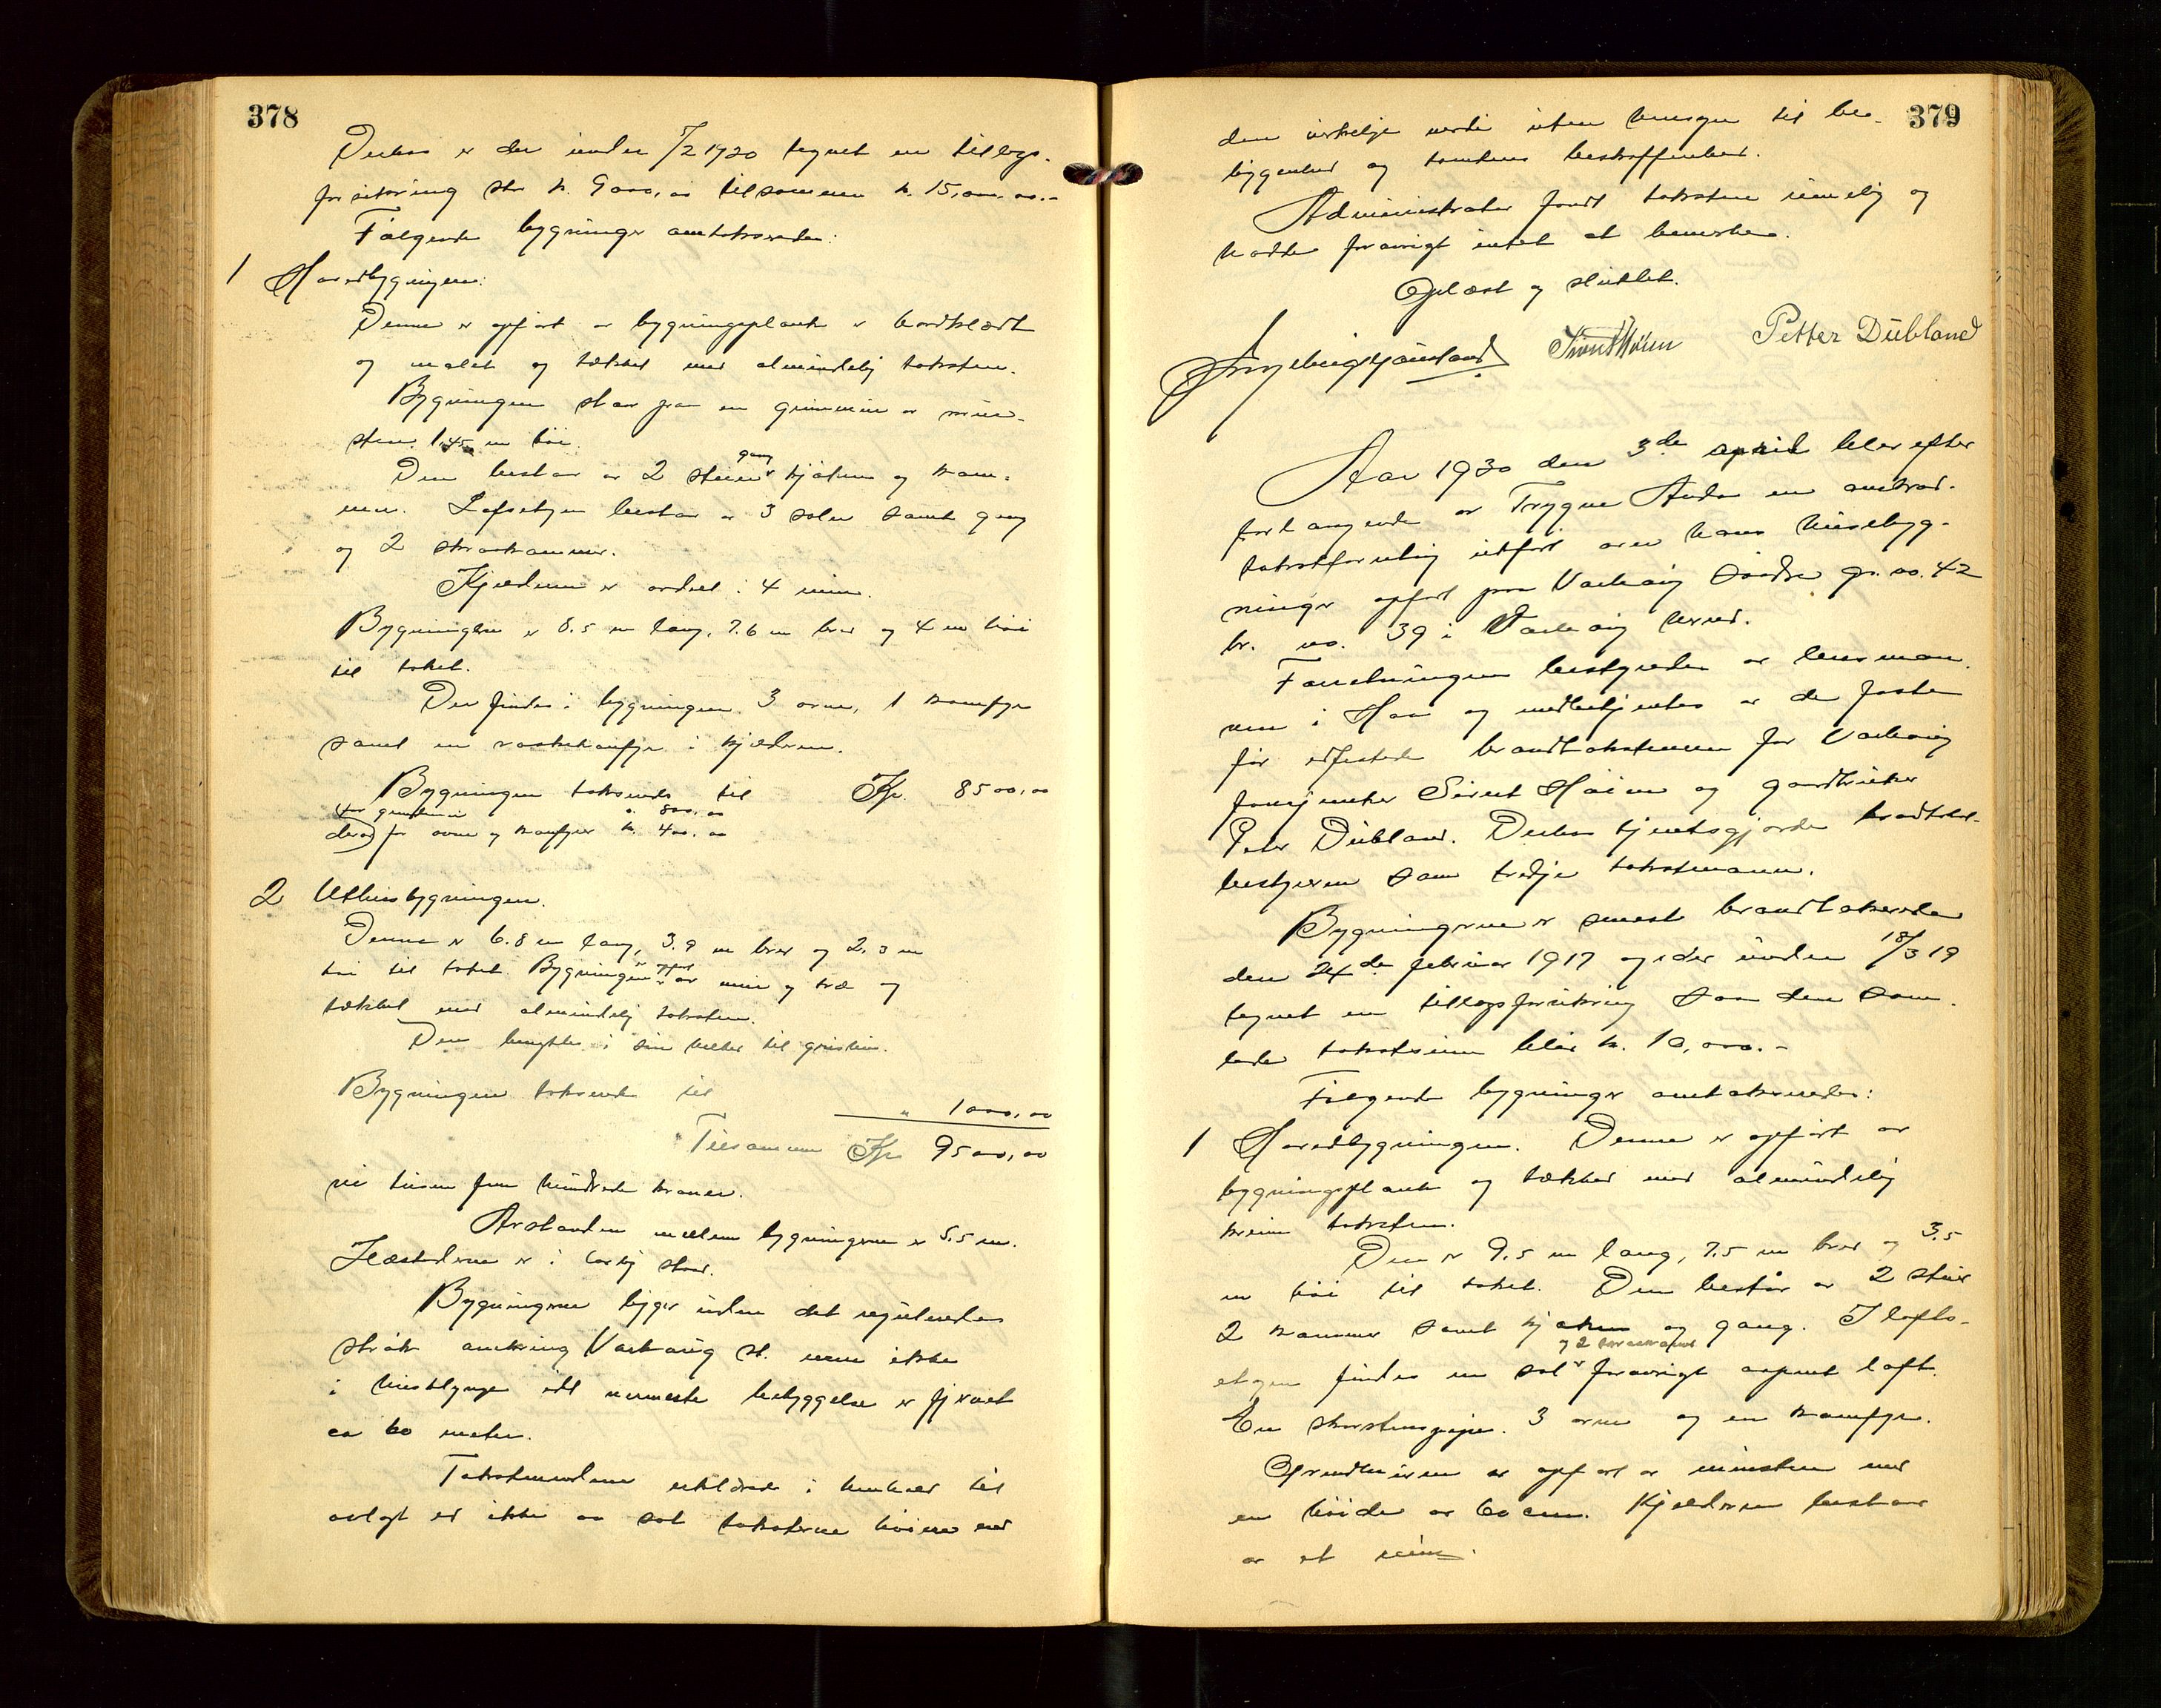 378
Desuten er der under 7/2 1920 tegnet en tillægs-
forsikring stor kr. 9000,00 tilsammen kr. 15,000.00.-
Følgende bygninger omtakseredes:
1 Hovedbygningen:
Denne er opført av bygningsplank er bordklædt
og malet og tækket med almindelig taksten.
Bygningen staar paa en grunnmur av mur-
sten 1,45 m høi.
Den bestaar av 2 stuer gang kjøkken og kam-
mer. Loftsetagen bestaar av 3 soler samt gang
og 2 
Kjelderen er avdelt i 4 rum.
Bygningen er 8.5 m lang, 7.6 m bred og 4 m høi
til taket.
Der findes i bygningen 3 ovne, 1 komfyr
samt en vaskekomfyr i kjelderen.
Bygningen takseredes til Kr. 8500,00
for grundmur kr. 800,00
derav for ovne og komfyrer kr. 400,00
2 Uthusbygningen.
Denne er 6.8 m lang, 3.9 m bred og 2.3 m
høi til taket. Bygningen er opført av mur og træ og
tækket med almindelig taksten.
Den benyttes i sin helhet til grisehus.
Bygningen takseredes til " 1000,00
Tilsammen Kr 9500,00
ni tusen fem hundrede kroner.
Avstanden mellem bygningerne er 5.5 m.
Ildstederne er i lovlig stand.
Bygningerne ligger inden det regulerede
strøk omkring Varhaug st. men ikke
i husklynge idet nærmeste bebyggelse er fjernet
ca 60 meter.
Takstmendene erklærede i henhold til
avlagt ed ikke at ha sat taksterne høiere end
379
den virkelige verdi uten hensyn til be-
liggenhed og tomtens beskaffenhed.
Administrator fandt taksten rimelig og
hadde forøvrigt intet at bemerke.
Oplæst og sluttet.
Sivert Høien Petter Dübland
Aar 1930 den 3de april blev efter
forlangende av Trygve Auda en omkrod-
takstforretning utført over hans husebyg-
ninger opført paa Varhaug Søndre gr. no. 42
br. no. 39 i Varhaug herred.
Forretningen bestyredes av lensman-
nen i Haa og medbetjentes av de faste
før edfæstede brandtakstmenn for Varhaug
Sivert Høien og gaardbruker
Peter Dübland. Desuten tjenestegjorde brandtakst-
bestyreren som tredje takstmann.
Bygningerne er senest brandtakserede
den 24de februar 1917 og er der under 18/3 19
tegnet en tillægsforsikring saa den sam-
lede takstsum blir kr. 10,000.-
Følgende bygninger omtakseredes:
1 Hovedbygningen. Denne er opført av
bygningsplank og tækket med almindelig
 taksten.
Den er 9.5 m lang, 7.5 m bred og 3.5
m høi til taket. Den består av 2 stuer
2 kammer samt kjøkken og gang. I lofts-
og 2 
etagen findes en sal forøvrigt aapent loft.
En skorstenspipe. 3 ovne og en komfyr.
Grundmuren er opført av mursten med
en høide av 60 cm. Kjelderen bestaar
av et rum.